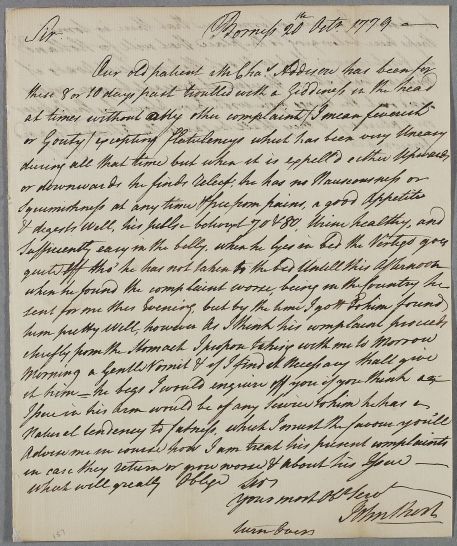 Borness 20th Octr. 1779
Sir.
Our old patient Mr Chas. Addison has been for
these 8 or 10 days past troubled with a Giddiness in the head
at times without any other complaint (I mean feverish
or Gouty) excepting flatulencys which has been very Uneasy
during all that time but when it is expell'd either Upwards
or downwards he finds releef; he has no Nauseousness or
Squimishness at any time & free from pains, a good Appetite
& digests Well, his pulse betwixt 70 & 80, Urine healthy, and
Sufficiently easy in the belly, when he lyes in bed the Vertigo goes
quite off tho' he has not taken to the bed Untill this Afternoon
when he found the complaint worse, being in the Country he
sent for me this Evening, but by the time I gott to him found
him pretty Well, however As I think his complaint proceeds
chiefly from the Stomach I propose taking with me to Morrow
Morning a Gentle Vomit & if I find it Necessary shall give
it him — he begs I would enquire off you if you think an
Issue in his arm would be of any Service to him he has a
Natural tendency to fatness, which I must beg the favour you'll
Advise me in course how I am treat his present complaints
in case they return or grow worse & about his Issue —
which will greatly Oblige Sir
Your most Obt Servt
John Short
turn Over
157